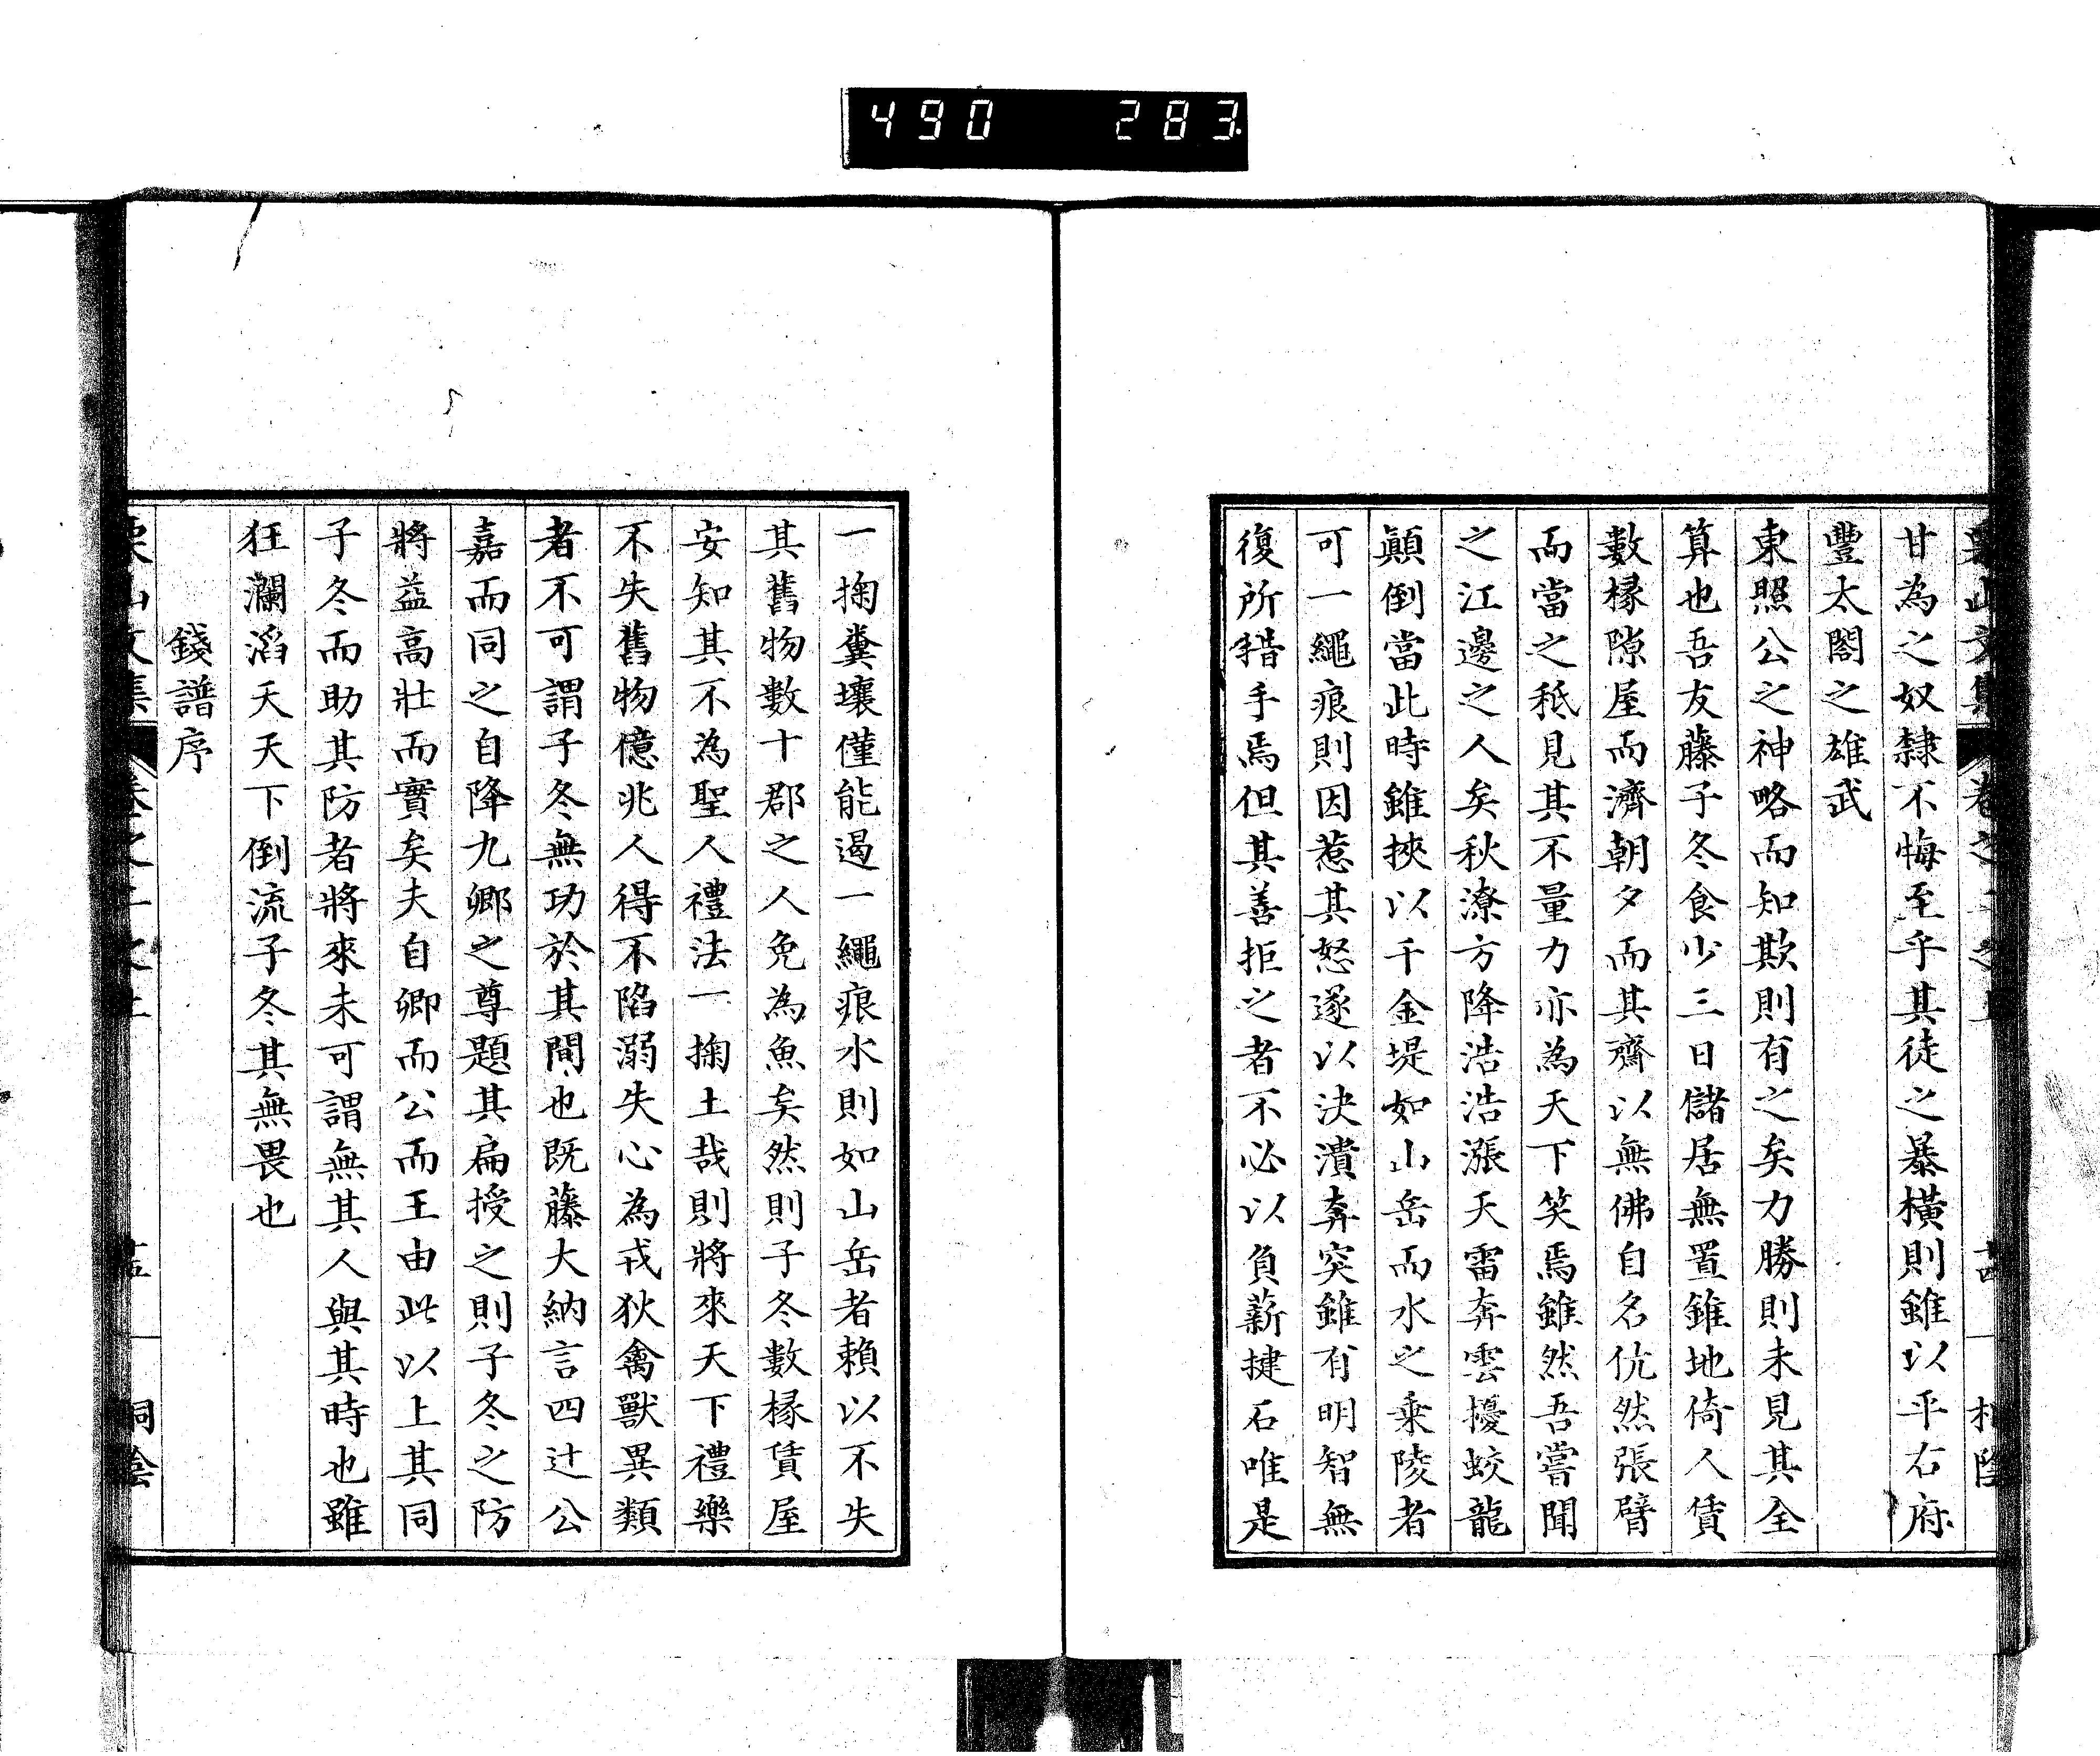 490 283
甘為之奴隸不悔至乎其徒之暴橫則雖以平右府
豐太閤之雄武
東照公之神略而知欺則有之矣力勝則未見其全
算也吾友藤子冬食少三日儲居無置錐地倚人賃
數椽隙屋而濟朝夕而其齋以無佛自名伉然張臂
而當之秪見其不量力亦為天下笑焉雖然吾嘗聞
之江邊之人矣秋潦方降浩浩漲天雷奔雲擾蛟龍
顛倒當此時雖挾以千金堤如山岳而水之乘陵者
可一繩痕則因惹其怒遂以決潰奔突雖有明智無
復所措手焉但其善拒之者不必以負薪揵石唯是
一掬糞壤僅能遏一繩痕水則如山岳者賴以不失
其舊物數十郡之人免為魚矣然則子冬數椽賃屋
安知其不為聖人禮法一掬土哉則將來天下禮樂
不失舊物億兆人得不陷溺失心為戎狄禽獸異類
者不可謂子冬無功於其間也既藤大納言四辻公
嘉而同之自降九卿之尊題其扁授之則子冬之防
將益高壯而實矣夫自卿而公而王由此以上其同
子冬而助其防者將來未可謂無其人與其時也雖
狂瀾滔天天下倒流子冬其無畏也
錢譜序